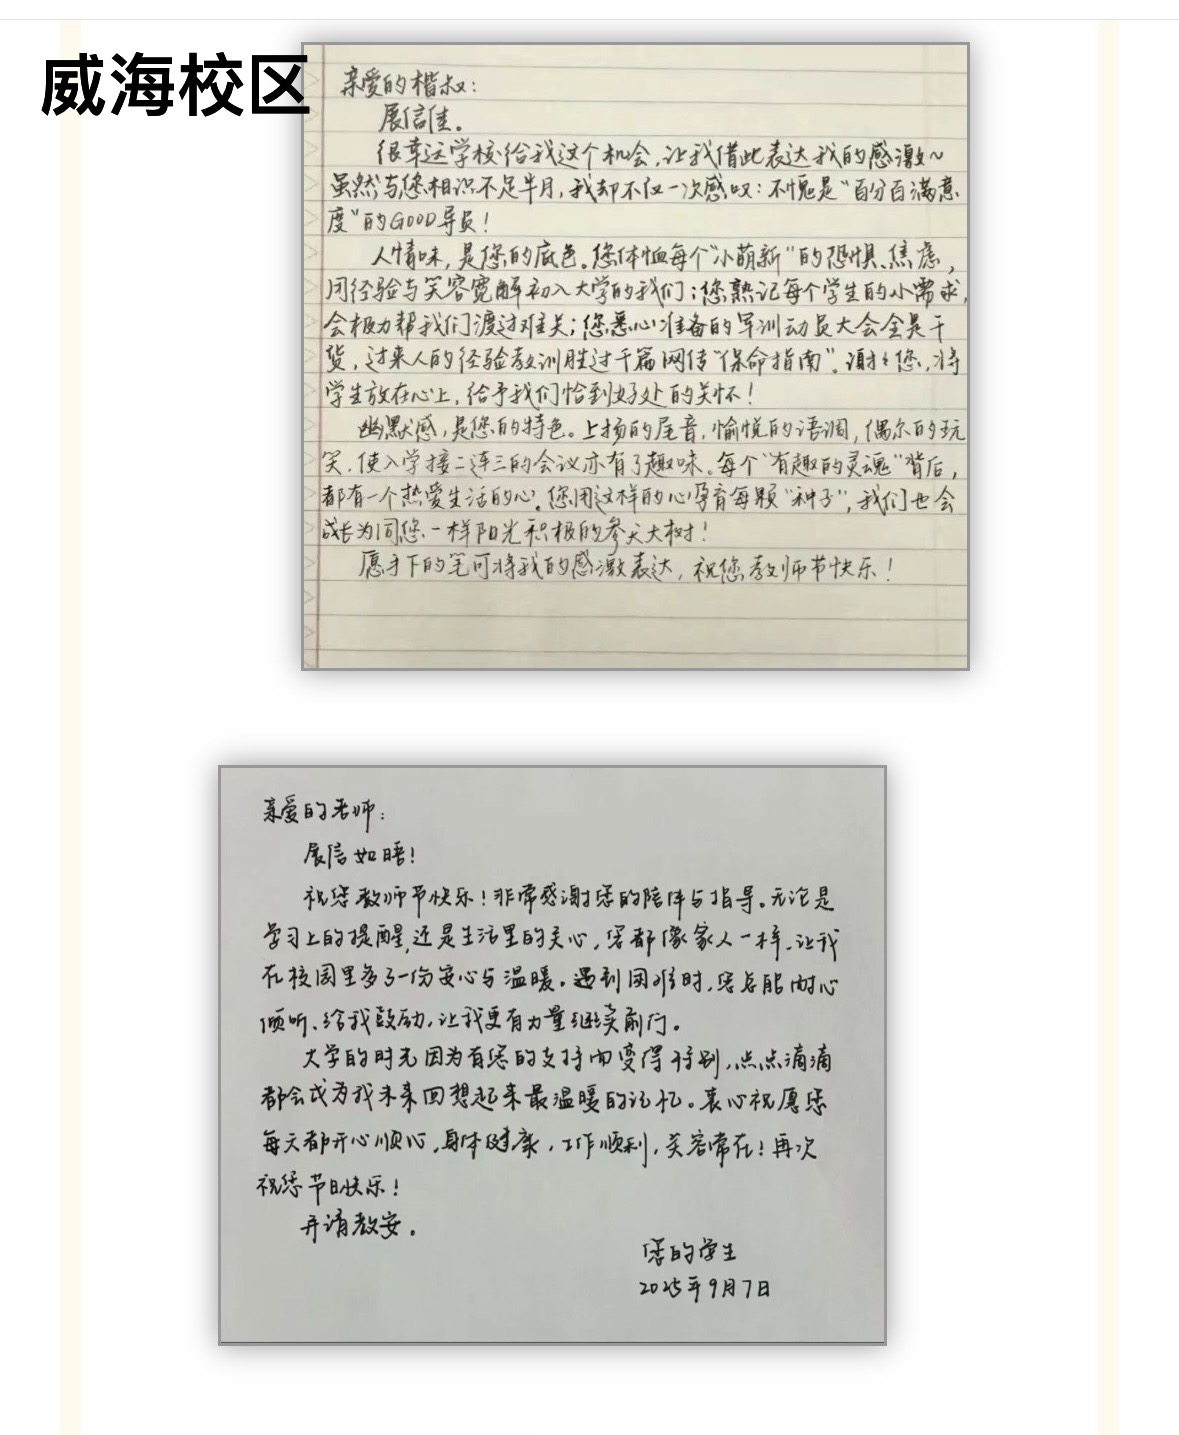 威海校区
亲爱的楷叔：
展信佳。
很幸运学校给我这个机会，让我借此表达我的感激～
虽然与您相识不足半月，我却不仅一次感叹：不愧是“百分百满意
度”的GOOD导员！
人情味，是您的底色。您体恤每个“小萌新”的恐惧、焦虑，
用经验与笑容宽解初入大学的我们；您熟记每个学生的小需求，
会极力帮我们渡过难关；您悉心准备的军训动员大会全是干
货，过来人的经验教训胜过千篇网传“保命指南”。谢谢您，将
学生放在心上，给予我们恰到好处的关怀！
幽默感，是您的特色。上扬的尾音，愉悦的语调，偶尔的玩
笑，使入学接二连三的会议亦有了趣味。每个“有趣的灵魂”背后，
都有一个热爱生活的心。您用这样的心孕育每颗“种子”，我们也会
成长为同您一样阳光积极的参天大树！
愿手下的笔可将我的感激表达，祝您教师节快乐！
亲爱的老师：
展信如晤！
祝您教师节快乐！非常感谢您的陪伴与指导。无论是
学习上的提醒，还是生活里的关心，您都像家人一样，让我
在校园里多了一份安心与温暖。遇到困难时，您总能耐心
倾听、给我鼓励，让我更有力量继续前行。
大学的时光因为有您的支持而变得特别，点点滴滴
都会成为我未来回想起来最温暖的记忆。衷心祝愿您
每天都开心顺心，身体健康，工作顺利，笑容常在！再次
祝您节日快乐！
并请教安。
您的学生
2025年9月7日